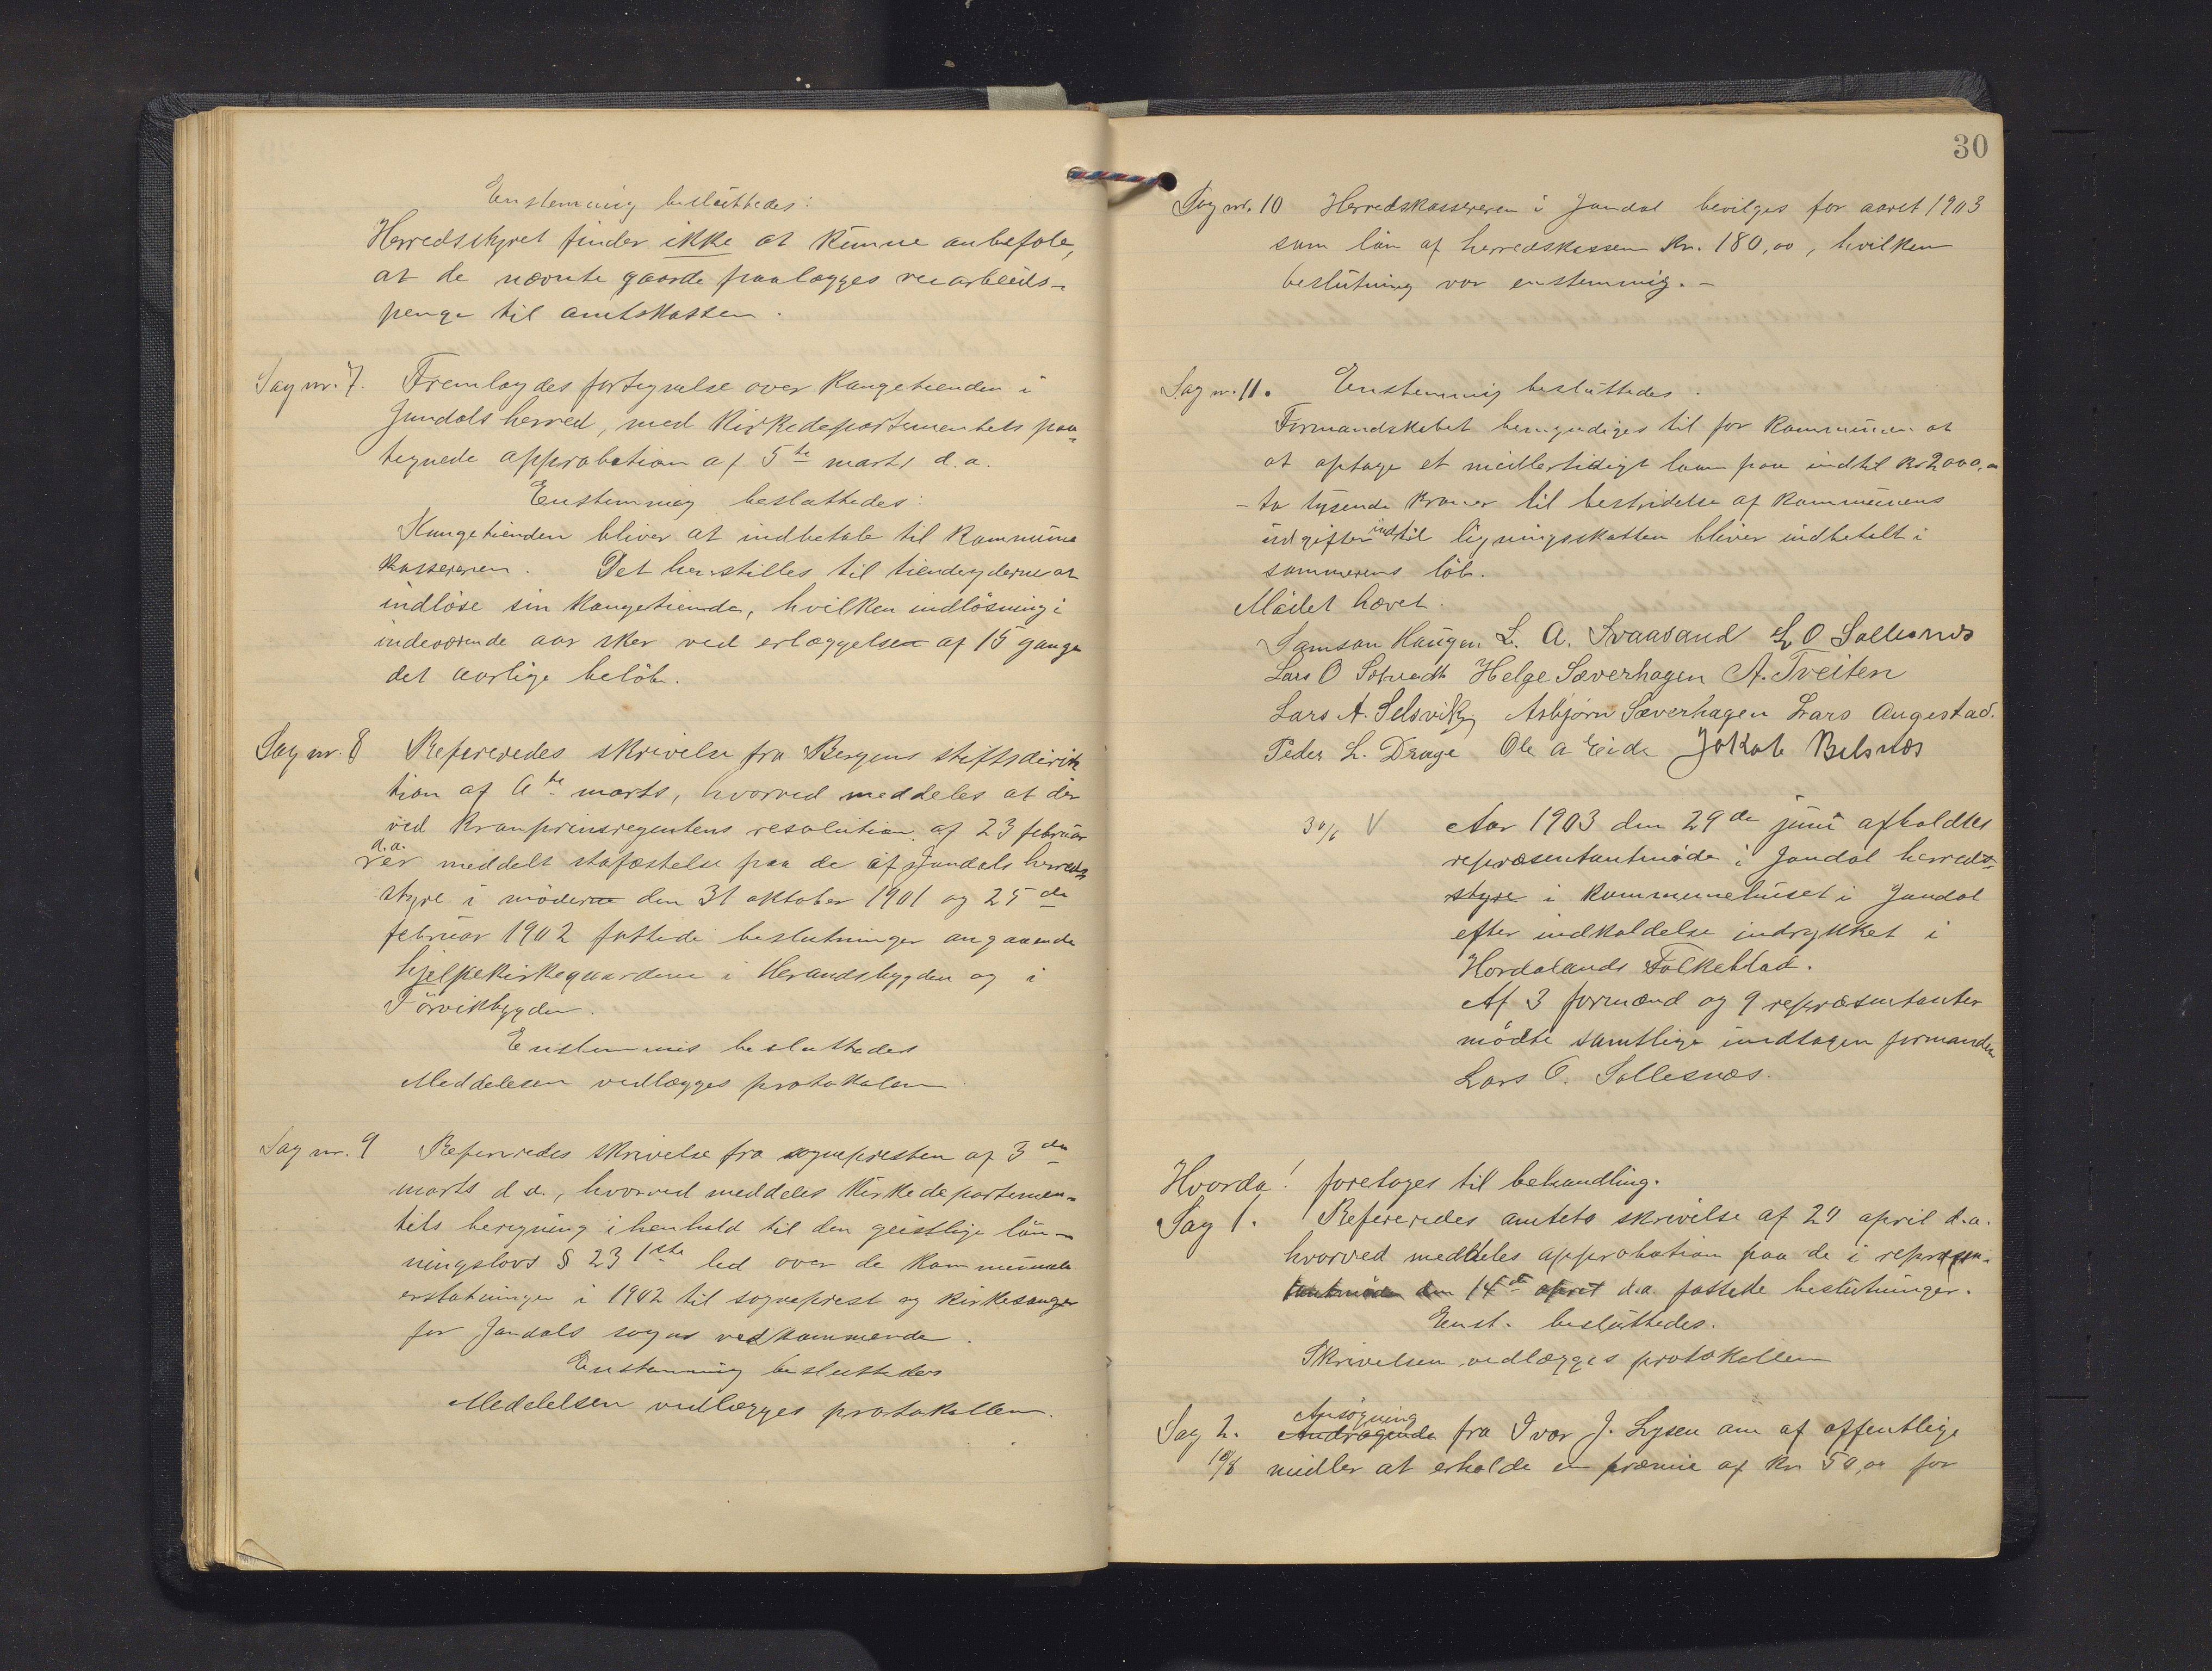 Enstemmig besluttedes:
Herredstyret finder ikke at kunne anbefale,
at de nævnte gaarde paalægges veiarbeids-
penge til amtskassen.
Sag nr. 7. Fremlagdes fortegnelse over Kongetienden i
Jondals herred, med Kirkedepartementets paa-
tegnede approbation af 5te marts d.a.
Enstemmig besluttedes:
Kongetienden bliver at indbetale til kommune
kassereren. Det henstilles til tiendeyderne at
indløse sin Kongetiende, hvilken indløsning i
indeværende aar sker ved erlæggelsen af 15 gange
det aarlige beløb.
Sag nr. 8 Refereredes skrivelse fra Bergens stiftsdirek
tion af 6te marts, hvorved meddeles at der
ved Kronprinsregentens resolution af 23 februar
d.a.
er meddelt stafæstelse paa de af Jondals herreds
styre i møderne den 31 oktober 1901 og 25de
februar 1902 fattede beslutninger angaaende
hjelpekirkegaardene i Herandsbygden og i
Tørvikbygden.
Enstemmig besluttedes
Meddelelsen vedlægges protokolen
Sag nr. 9 Refereredes skrivelse fra sognepresten af 3die
marts d.a., hvorved meddeles Kirkedepartemen-
tets beregning i henhold til den geistlige løn-
ningslovs § 23 1ste led over de kommunale
erstatninger i 1902 til sogneprest og kirkesanger
for Jondals sogns vedkommende.
Enstemmig besluttedes
Meddelelsen vedlægges protokollen.
30
Sag nr. 10 Herredskassereren i Jondal bevilges for aaret 1903
som løn af herredskassen Kr. 180,00, hvilken
beslutning var enstemmig. -
Sag nr. 11. Enstemmig besluttedes.
Formandskabet bemyndiges til for kommunen at
at optage et midlertidigt laan paa indtil Kr 2000,00
- to tusende Kroner til bestridelse af kommunens
udgifter indtil ligningsskatten bliver indbetalt i
sommerens løb.
Mødet hævet.
Samson Haugen L. A. Svaasand L O Sollesnes
Lars O Helge Sæverhagen A. Tveiten
Lars A. Selsvik Asbjørn Sæverhagen Lars Augestad.
Peder L. Drage Ole A Eide Jakob Belsnæs
30/6 V Aar 1903 den 29de juni afholdtes
repræsentantmøde i Jondal herreds-
styre i kommunehuset i Jondal
efter indkaldelse indrykket i
Hordalands Folkeblad.
Af 3 formænd og 9 repræsentanter
mødte samtlige undtagen formanden
Lars O. Sollesnæs.
Hvorda! foretages til behandling.
Sag 1. Refereredes amtets skrivelse af 29 april d.a.
hvorved meddeles approbation paa de i repræsen-
tantmøde den 14de april d.a. fattede beslutninger.
Enst. besluttedes.
Skrivelsen vedlægges protokollen
Ansøgning
Sag 2. Andragende fra Ivar J. Lysen om af offentlige
10/8 midler at erholde en præmie af Kr 50,00 for